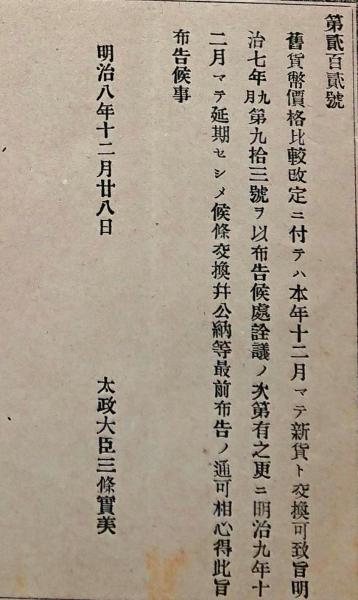 第貳百貳號
舊貨幣價格比較改定ニ付テハ本年十二月マテ新貨ト交換可致旨明
治七年九月第九拾三號ヲ以布告候處詮議ノ次第有之更ニ明治九年十
二月マテ延期セシメ候條交換幷公納等最前布告ノ通可相心得此旨
布告候事
明治八年十二月廿八日
太政大臣三條實美